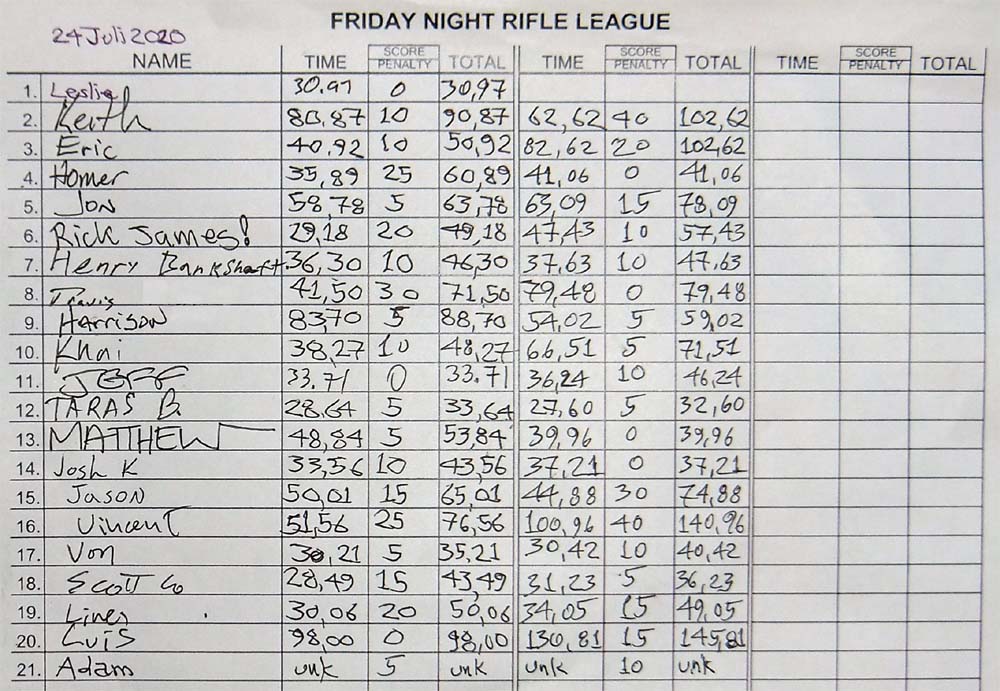 FRIDAY NIGHT RIFLE LEAGUE
24 Juli 2020
NAME TIME SCORE PENALTY TOTAL TIME SCORE PENALTY TOTAL TIME SCORE PENALTY TOTAL
1. Leslie 30.97 0 30,97
2. Keith 80,87 10 90,87 62,62 40 102,62
3. Eric 40,92 10 50,92 82,62 20 102,62
4. Homer 35,89 25 60,89 41,06 0 41,06
5. Jon 58,78 5 63,78 63,09 15 78,09
6. Rick James! 29,18 20 49,18 47,43 10 57,43
7. Henry Bankshaft 36,30 10 46,30 37,63 10 47,63
8. Travis 41,50 30 71,50 79,48 0 79,48
9. Harrison 83,70 5 88,70 54,02 5 59,02
10. Khai 38,27 10 48,27 66,51 5 71,51
11. JEFF 33.71 0 33.71 36,24 10 46,24
12. TARAS B. 28,64 5 33,64 27,60 5 32,60
13. MATTHEW 48,84 5 53,84 39,96 0 39,96
14. Josh K 33,56 10 43,56 37,21 0 37,21
15. Jason 50,01 15 65,01 44,88 30 74,88
16. Vincent 51,56 25 76,56 100,96 40 140,96
17. Von 30,21 5 35,21 30,42 10 40,42
18. Scott Co 28,49 15 43,49 31,23 5 36,23
19. 30,06 20 50,06 34,05 15 49,05
20. Luis 98,00 0 98,00 130,81 15 145,81
21. Adam unk 5 unk unk 10 unk